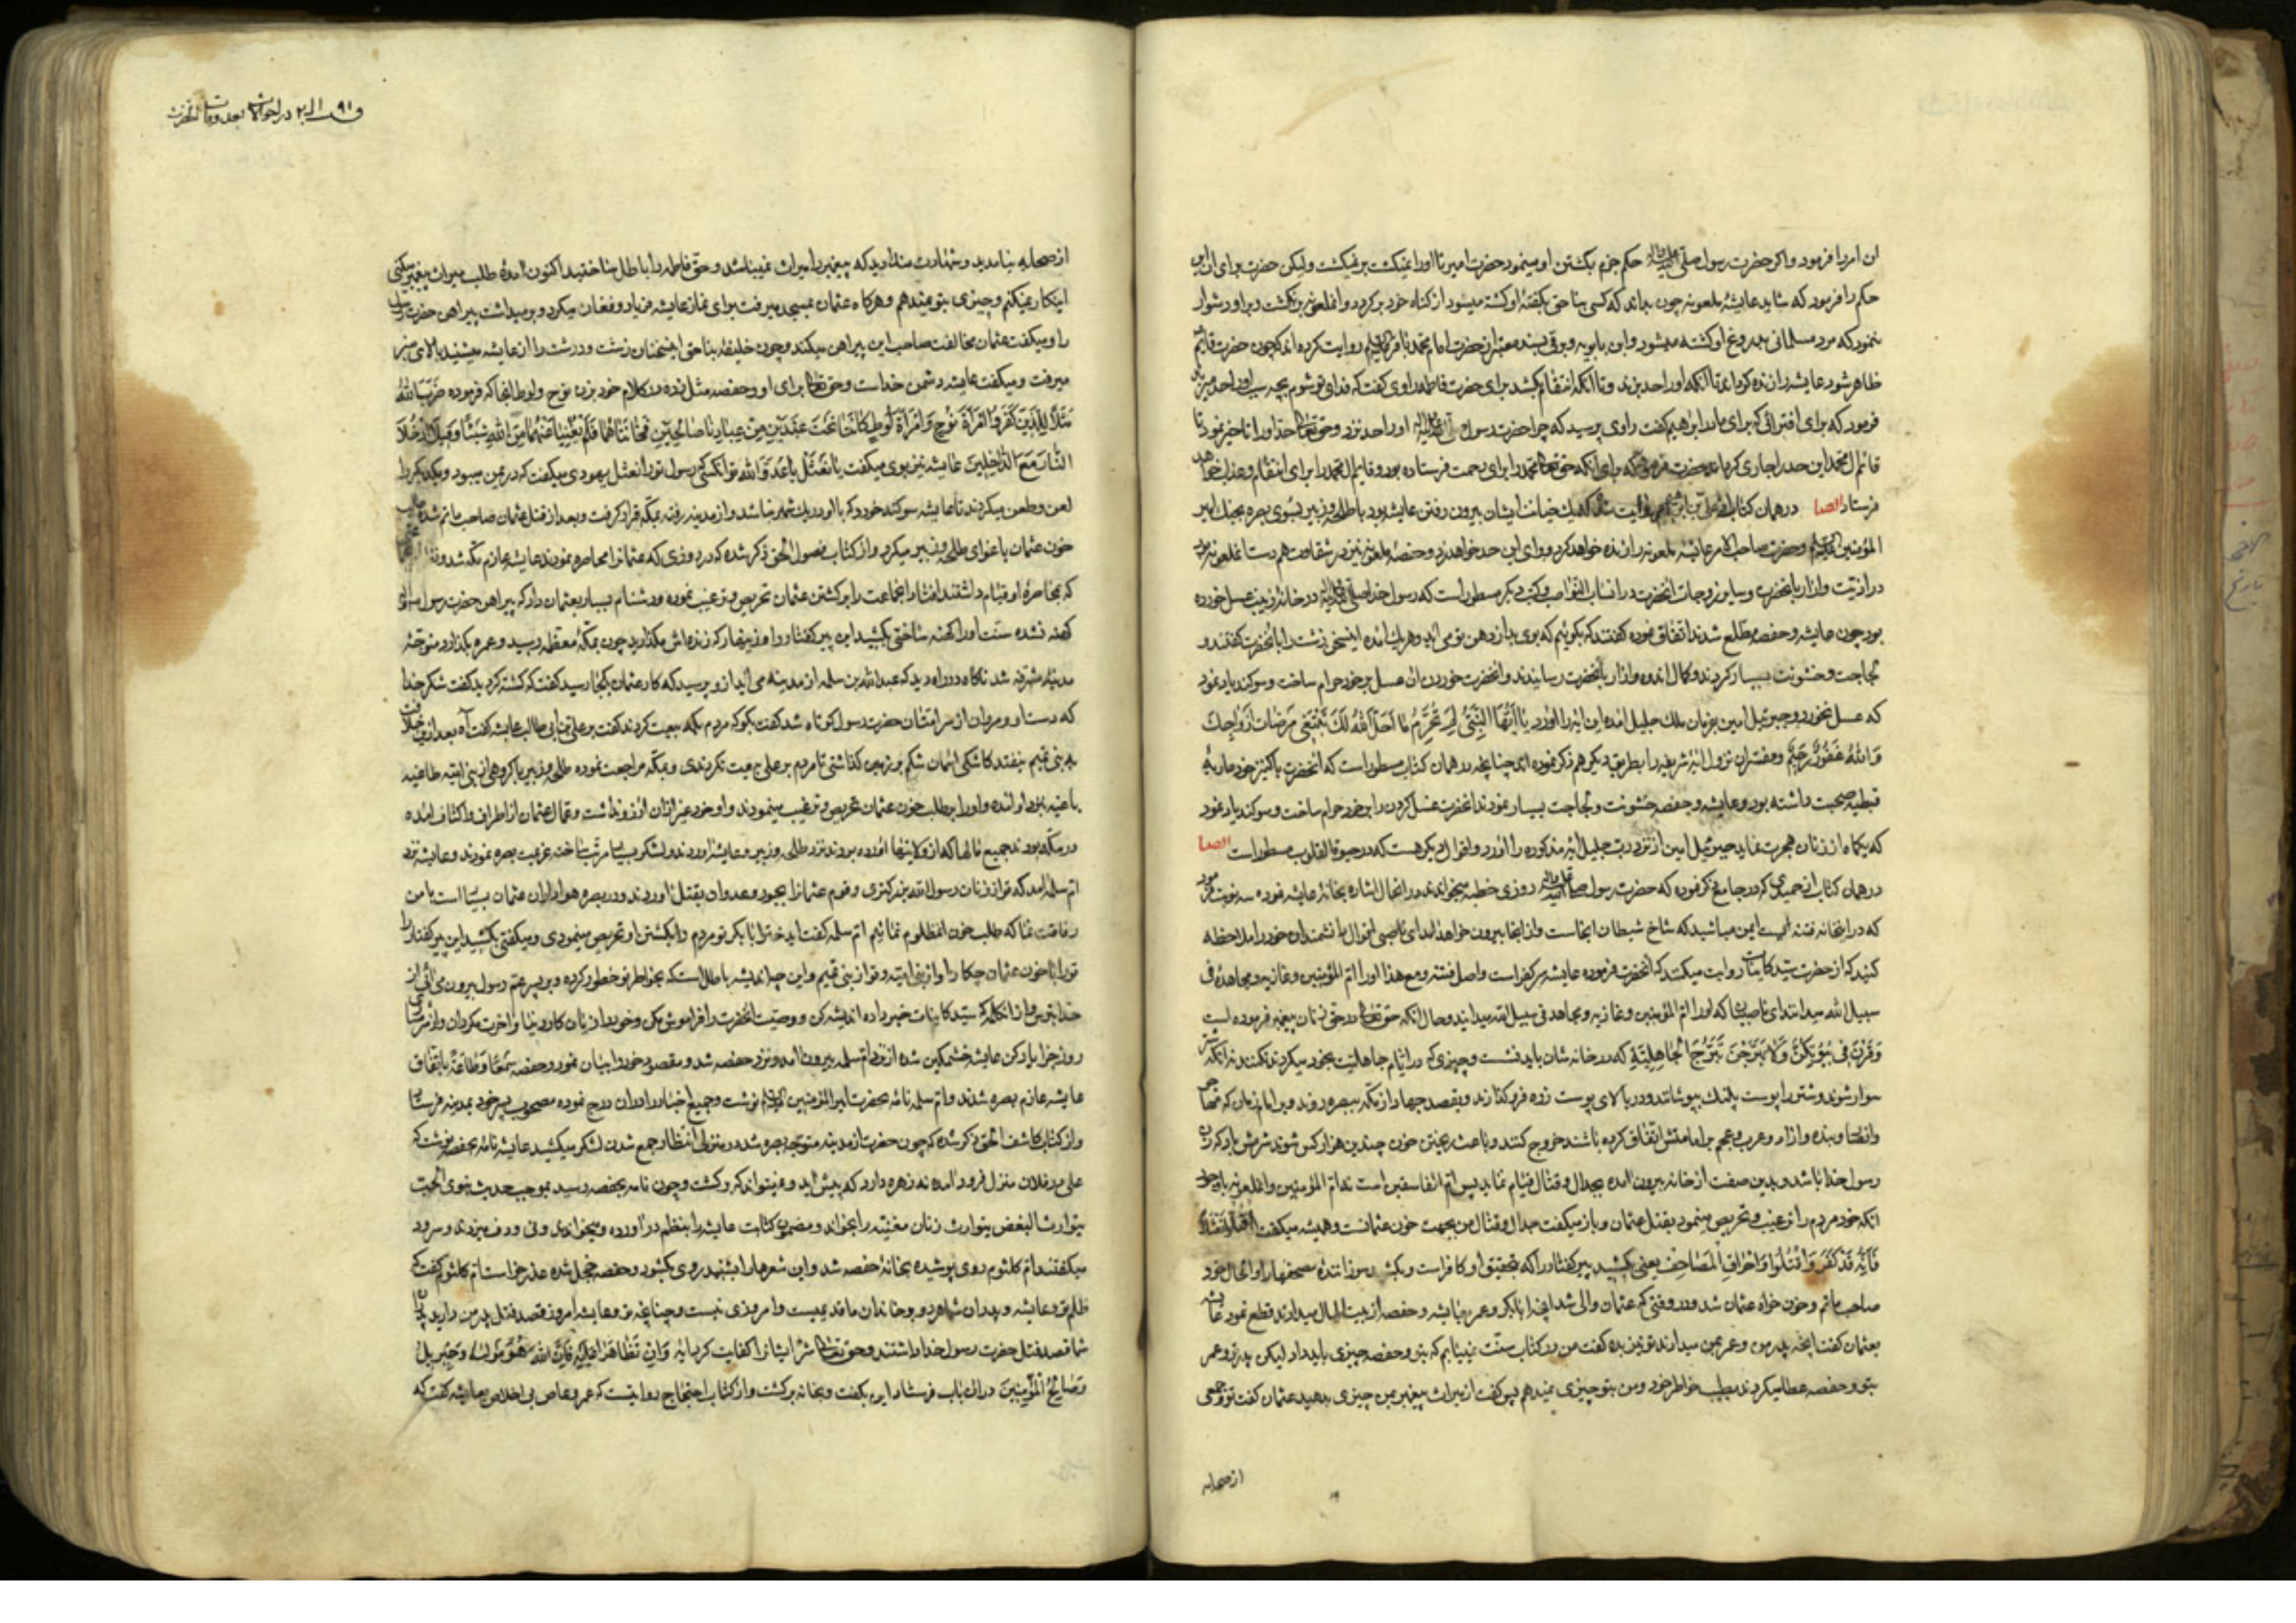 ان امر را فرمود و اکر حضرت رسول صلی الله علیه واله حکم جزم بکشتن او مینمود حضرت امیر تا او را نمیکشت بر نمیکشت ولیکن حضرت برای آن این
حکم را فرمود که شاید عایشهٔ ملعونه چون بداند که کسی بناحق بکفتهٔ او کشته میشود از کناه خود بر کردد و انملعونه بر نکشت و بر او دشوار
ننمود که مرد مسلمانی بدروغ او کشته میشود و ابن بابویه و برقی بسند معتبر از حضرت امام محمد باقر روایت کرده اند که چون حضرت قایم
ظاهر شود عایشه را زنده کرداند تا آنکه او را حد بزند و تا آنکه انتقام بکشد برای حضرت فاطمه راوی کفت که فدای تو شوم بچه سبب او را حد میزند
فرمود که برای افترائی که برای مادر ابرهیم کفت راوی پرسید که چرا حضرت رسول او را حد نزد و حق تعالی حد او را تاخیر نمود تا
قائم ال محمد این حد را جاری کرداند حضرت فرمود که برای آنکه حق تعالی محمد را برای رحمت فرستاده بود و قایم ال محمد را برای انتقام و عذاب خواهد
فرستاد ایضا در همان کتاب از علی بن ابرهیم روایت شده که خیانت ایشان بیرون رفتن عایشه بود با طلحه و زبیر بسوی بصره بجنك امیر
المؤمنین و حضرت صاحب الامر عایشه ملعونه را زنده خواهد کرد و او را این حد خواهد زد و حفصهٔ ملعونه نیز در شقاوت همدست انملعونه بود
در اذیت و ازار بانحضرت و سایر زوجات انحضرت در انساب النواصب و کتب دیکر مسطور است که رسول خدا در خانهٔ زینب عسل خورده
بود چون عایشه و حفصه مطلع شدند اتفاق نموده کفتند که بکوئیم که بوی بد از دهن تو می اید و هریك امده این سخن زشت را بانحضرت کفتند و
لجاجت و خشونت بسیار کردند و کمال اندوه و ازار بانحضرت رسانیدند و انحضرت خوردن ان عسل بر خود حرام ساخت و سوکند یاد نمود
که عسل نخورد و جبرئیل امین بفرمان ملك جلیل امده این ایه را اورد یَا اَیُّهَا النَّبِیُّ لِمَ تُحَرِّمُ مَا اَحَلَّ اللهُ لَكَ تَبْتَغِی مَرْضَاتَ اَزْوَاجِكَ
وَاللهُ غَفُورٌ رَحِیمٌ و مفسران نزول ایهٔ شریفه را بطریق دیکر هم ذکر نموده اند چنانچه در همان کتاب مسطور است که انحضرت با کنیز خود ماریهٔ
قبطیه صحبت داشته بود و عایشه و حفصه خشونت و لجاجت بسیار نمودند انحضرت عسل کردن را بر خود حرام ساخت و سوکند یاد نمود
که یکماه از زنان هجرت نماید جبرئیل امین از نزد رب جلیل ایهٔ مذکوره را اورد و اقوال دیکر هست که در حیوة القلوب مسطور است ایضا
در همان کتاب از حمیدی که در جامع ذکر نموده که حضرت رسول روزی خطبه میخواندند در انحال اشاره بخانهٔ عایشه نموده سه نوبت فرمود
که در اینخانه فتنه است ایمن مباشید که شاخ شیطان اینجاست و از اینجا بیرون خواهد امد ای ناصبی اقوال دانشمندان خود را ملاحظه
کنید که از حضرت سید کاینات روایت میکنند که انحضرت فرموده عایشه سر کفر است و اصل فتنه و مع هذا او را ام المؤمنین و غازیه و مجاهده فی
سبیل الله میدانند ای ناصبیان شما که او را ام المؤمنین و غازیه و مجاهد فی سبیل الله میدانید و حال آنکه حق تعالی در حق زنان پیغمبر فرموده است
وَقَرْنَ فِی بُیُوتِکُنَّ وَلَا تَبَرَّجْنَ تَبَرُّجَ الْجَاهِلِیَّةِ که در خانه شان باید نشست و چیزی که در ایام جاهلیت بخود میکردند نکنند نه آنکه شتر
سوار شوند و شتر را پوست پلنك بپوشانند و در بالای پوست زره فرو کذارند و بقصد جهاد از مکه ببصره روند و بر امام زمان که مهاجر
وانصار و بنده و ازاد و عرب و عجم بر امامتش اتفاق کرده باشند خروج کنند و باعث ریختن خون چندین هزار کس شوند شرمش باد که زن
رسول خدا باشد و بدین صفت از خانه بیرون امده بجدال و قتال قیام نماید پس ام الفاسقین است نه ام المؤمنین و انملعونه با وجود
انکه خود مردم را ترغیب و تحریص مینمود بقتل عثمان و باز میکفت جدال و قتال من بجهت خون عثمانست و همیشه میکفت اُقْتُلُوا نَعْثَلًا
فَاِنَّهُ قَدْ کَفَرَ وَاقْتُلُوا حَرَّاقَ الْمَصَاحِفِ یعنی بکشید پیر کفتار را که بتحقیق او کافر است و بکشید سوزانندهٔ مصحفها را و الحال خود
صاحب ماتم و خون خواه عثمان شد و در وقتی که عثمان والی شد انچه ابابکر و عمر بعایشه و حفصه از بیت المال میدادند قطع نمود عایشه
بعثمان کفت انچه پدر من و عمر بمن میدادند تو نیز بده کفت من در کتاب و سنت نمییابم که بتو و حفصه چیزی باید داد لیکن پدر تو و عمر
بتو و حفصه عطا میکردند بطیب خواطر خود و من بتو چیزی نمیدهم پس کفت از میراث پیغمبر بمن چیزی بدهید عثمان کفت تو و جمعی
از صحابه
در احوالات بعد وفات انحضرت
از صحابه نیامدید و شهادت ندادید که پیغمبر را میراث نمیباشد و حق فاطمه را باطل ساختید اکنون امدهٔ طلب میراث پیغمبر میکنی
اینکار نمیکنم و چیزی بتو نمیدهم و هرکاه عثمان بمسجد میرفت برای نماز عایشه فریاد و فغان میکرد و بر میداشت پیراهن حضرت رسول
را و میکفت عثمان مخالفت صاحب این پیراهن میکند و چون خلیفهٔ بناحق اینسخنان زشت و درشت را از عایشه میشنید بالای منبر
میرفت و میکفت عایشه دشمن خداست و حق تعالی برای او و حفصه مثل زده در کلام خود بزن نوح و لوط انجا که فرموده ضَرَبَ اللهُ
مَثَلًا لِلَّذِینَ کَفَرُوا امْرَأَةَ نُوحٍ وَامْرَأَةَ لُوطٍ کَانَتَا تَحْتَ عَبْدَیْنِ مِنْ عِبَادِنَا صَالِحَیْنِ فَخَانَتَاهُمَا فَلَمْ یُغْنِیَا عَنْهُمَا مِنَ اللهِ شَیْئًا وَقِیلَ ادْخُلَا
النَّارَ مَعَ الدَّاخِلِینَ عایشه نیز بوی میکفت یا نَعْثَلُ یَا عَدُوَّ الله تو انکسی که رسول تو را نعثل یهودی میکفت که در یمن میبود و یکدیکر را
لعن و طعن میکردند تا عایشه سوکند خورد که با او در یك شهر نباشد و از مدینه رفته بمکه قرار کرفت و بعد از قتل عثمان صاحب ماتم شده طلب
خون عثمان باغوای طلحه و زبیر میکرد و از کتاب فصول الحق ذکر شده که در روزی که عثمانرا محاصره نمودند عایشه عازم مکه شد و
که بمحاصرهٔ او قیام داشتند انجماعت را بر کشتن عثمان تحریص و ترغیب نموده و دشنام بسیار بعثمان داد که پیراهن حضرت رسول هنوز
کهنه نشده سنت او را کهنه ساختی بکشید این پیر کفتار را و زینهار که زنده اش مکذارید چون بمکهٔ معظمه رسید و عمره بکذارد متوجه
مدینهٔ مشرفه شد ناکاه در راه دید که عبدالله بن سلمه از مدینه می اید ازو پرسید که کار عثمان بکجا رسید کفت که کشته کردید کفت شکر خدا
که دست او و مروان از سر امتان حضرت رسول کوتاه شد کفت بکو که مردم بکه بیعت کردند کفت بر علی بن ابی طالب عایشه کفت آه بعد ازین خلافت
به بنی تمیم نیفتد کاشکی اسمان شکم بر زمین کذاشتی تا مردم بر علی بیعت نکردندی و بمکه مراجعت نموده طلحه و زبیر با کروهی از بنی امیه طاغیه
باغیه نزد او امده و او را بر طلب خون عثمان تحریص و ترغیب مینمودند و او خود غیر ازان ارزو نداشت و عمال عثمان از اطراف و اکناف امده
در مکه بودند جمیع مالها که از ولایتها اورده بودند نزد طلحه و زبیر و عایشه اوردند و لشکر بسیار مرتب ساخته عزیمت بصره نمودند و عایشه نزد
ام سلمه امد که تو از زنان رسول الله بزرکتری و قوم عثمانرا بجور و عدوان بقتل اوردند و در بصره هواداران عثمان بسیار است با من
رفاقت نما که طلب خون انمظلوم نمائیم ام سلمه کفت ایدختر ابابکر تو مردم را بکشتن او تحریص مینمودی و میکفتی بکشید این پیر کفتار را
تو را با خون عثمان چکار او از بنی امیه و تو از بنی تمیم و این چه اندیشهٔ باطل است که بخواطر تو خطور کرده و بر پسر عم رسول بیرون می آئی از
خدا بترس و از انکلمه که سید کاینات خبر داده اندیشه کن و وصیت انحضرت را فراموش مکن و خود را از زیان کار دنیا و اخرت مکردان و از شرمساری
روز جزا یاد کن عایشه خشمکین شده از نزد ام سلمه بیرون امد و نزد حفصه شد و مقصود خود را بیان نمود و حفصه سَمْعًا وَطَاعَةً باتفاق
عایشه عازم بصره شدند و ام سلمه نامه بحضرت امیر المؤمنین نوشت و جمیع اخبار را در ان درج نموده مصحوب پسر خود بمدینه فرستاد
و از کتاب کاشف الحق ذکر شده که چون حضرت از مدینه متوجه بصره شد در منزلی انتظار جمع شدن لشکر میکشید عایشه نامه بحفصه نوشت که
علی در فلان منزل فرود امده نه زهره دارد که پیش اید و نمیتواند که برکشت و چون نامه بحفصه رسید بموجب حدیث نبوی الحب
یتوارث البغض یتوارث زنان مغنیه را بخواند و مضمون کتابت عایشه را بنظم در اورده و میخواندند و نی و دف میزدند و سرود
میکفتند ام کلثوم روی پوشیده بخانهٔ حفصه شد و این شعرها را شنید روی بکشود و حفصه خجل شده عذر خواست ام کلثوم کفت که
ظلم تو و عایشه و پدران شما هر دو بر خاندان ما قدیمیست و امروزی نیست و چنانچه تو و عایشه امروز قصد قتل پدر من دارید پدران
شما قصد قتل حضرت رسول خدا داشتند و حق تعالی شر ایشانرا کفایت کرد ایه وَاِنْ تَظَاهَرَا عَلَیْهِ فَاِنَّ اللهَ هُوَ مَوْلَاهُ وَجِبْرِیلُ
وَصَالِحُ الْمُؤْمِنِینَ دران باب فرستاد این بکفت و بخانه برکشت و از کتاب احتجاج روایتست که عمرو عاص بی اخلاص بعایشه کفت که